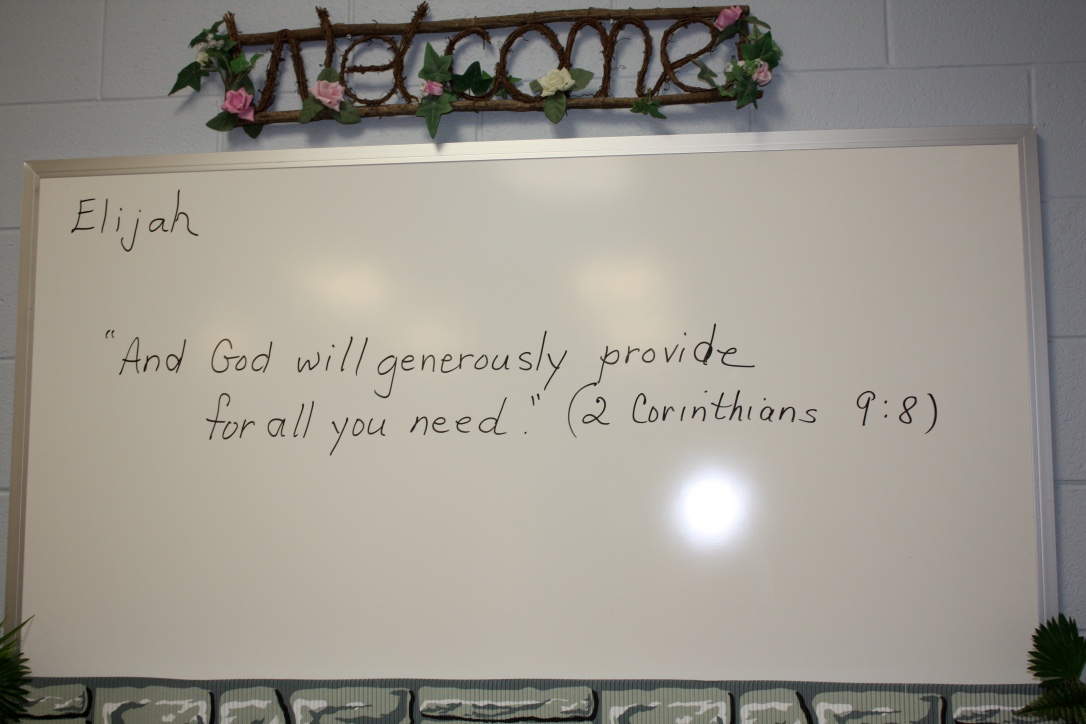 Welcome
Elijah
"And God will generously provide
for all you need." (2 Corinthians 9:8)